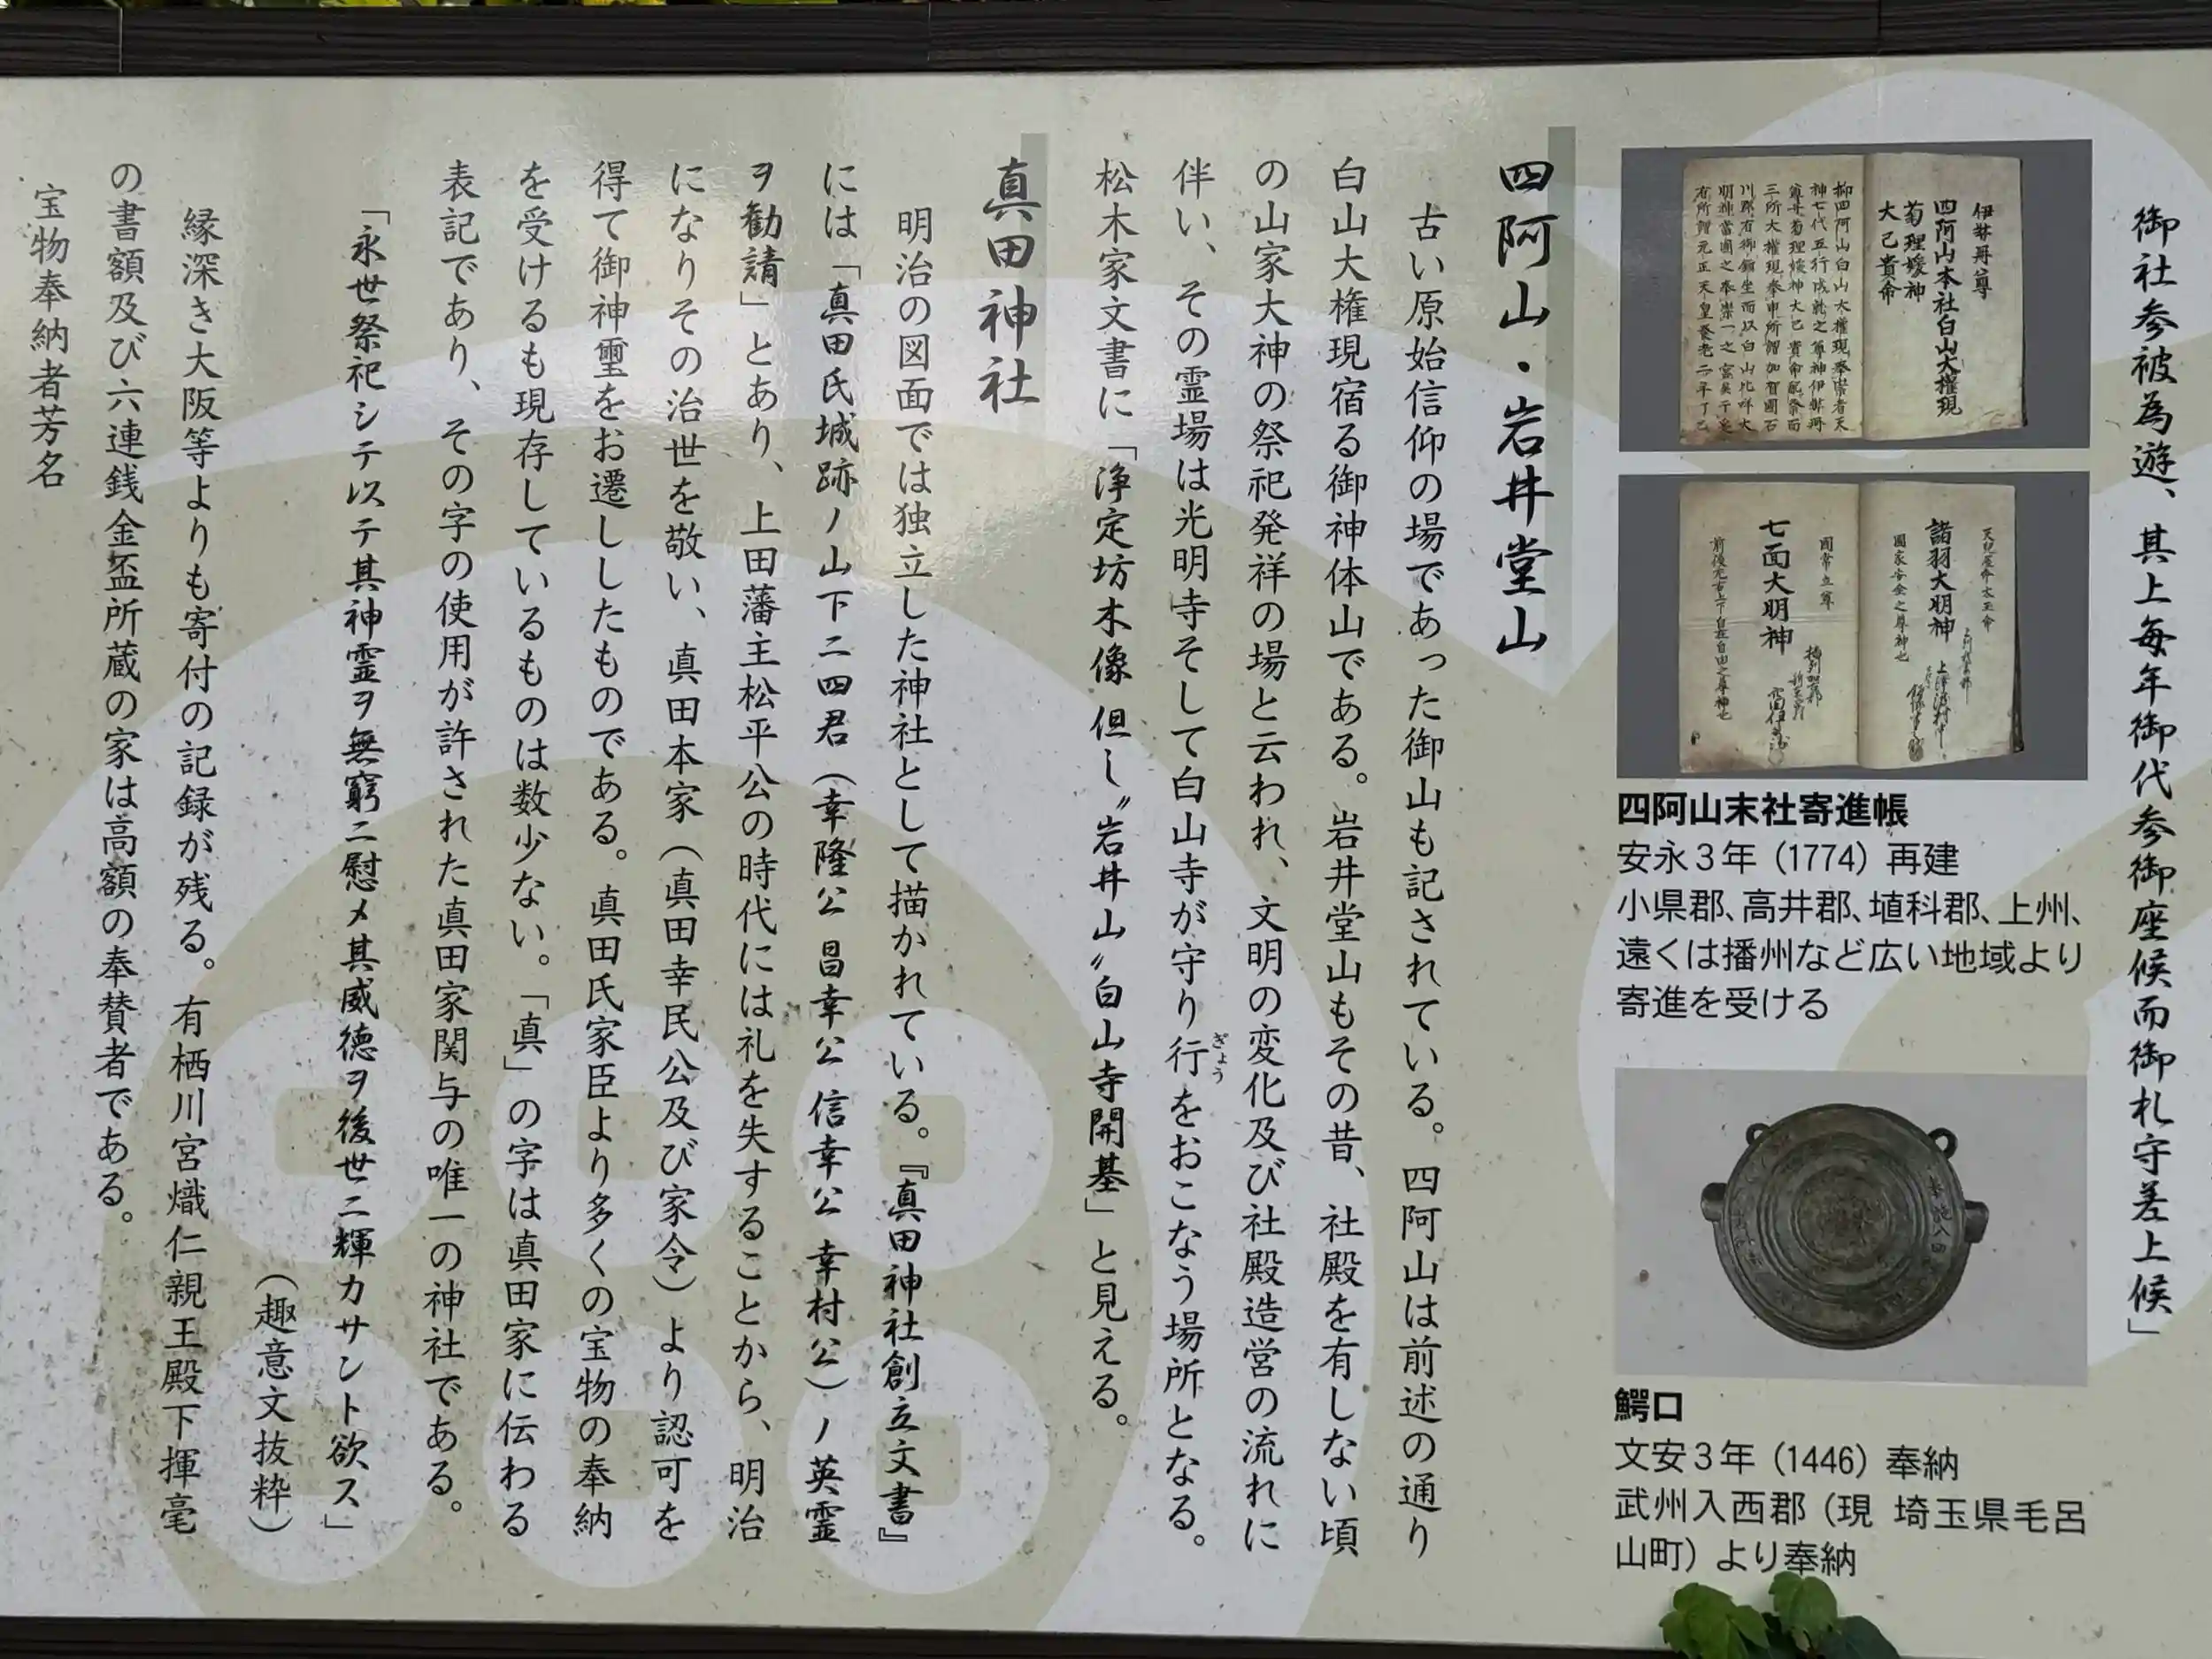 御社参被為遊、其上毎年御代参御座候而御札守差上候」
伊弉冊尊
四阿山本社白山大権現
菊理媛神
大己貴命
諸羽大明神
國家安全之尊神也
國常立尊
七面大明神
四阿山末社寄進帳
安永3年（1774）再建
小県郡、高井郡、埴科郡、上州、
遠くは播州など広い地域より
寄進を受ける
鰐口
文安3年（1446）奉納
武州入西郡（現 埼玉県毛呂
山町）より奉納
四阿山・岩井堂山
古い原始信仰の場であった御山も記されている。四阿山は前述の通り
白山大権現宿る御神体山である。岩井堂山もその昔、社殿を有しない頃
の山家大神の祭祀発祥の場と云われ、文明の変化及び社殿造営の流れに
伴い、その霊場は光明寺そして白山寺が守り行ぎょうをおこなう場所となる。
松木家文書に「浄定坊木像但し〃岩井山〃白山寺開基」と見える。
真田神社
明治の図面では独立した神社として描かれている。『真田神社創立文書』
には「真田氏城跡ノ山下ニ四君（幸隆公 昌幸公 信幸公 幸村公）ノ英霊
ヲ勧請」とあり、上田藩主松平公の時代には礼を失することから、明治
になりその治世を敬い、真田本家（真田幸民公及び家令）より認可を
得て御神璽をお遷ししたものである。真田氏家臣より多くの宝物の奉納
を受けるも現存しているものは数少ない。「真」の字は真田家に伝わる
表記であり、その字の使用が許された真田家関与の唯一の神社である。
「永世祭祀シテ以テ其神霊ヲ無窮ニ慰メ其威徳ヲ後世ニ輝カサント欲ス」
（趣意文抜粋）
縁深き大阪等よりも寄付の記録が残る。有栖川宮熾仁親王殿下揮毫
の書額及び六連銭金盃所蔵の家は高額の奉賛者である。
宝物奉納者芳名